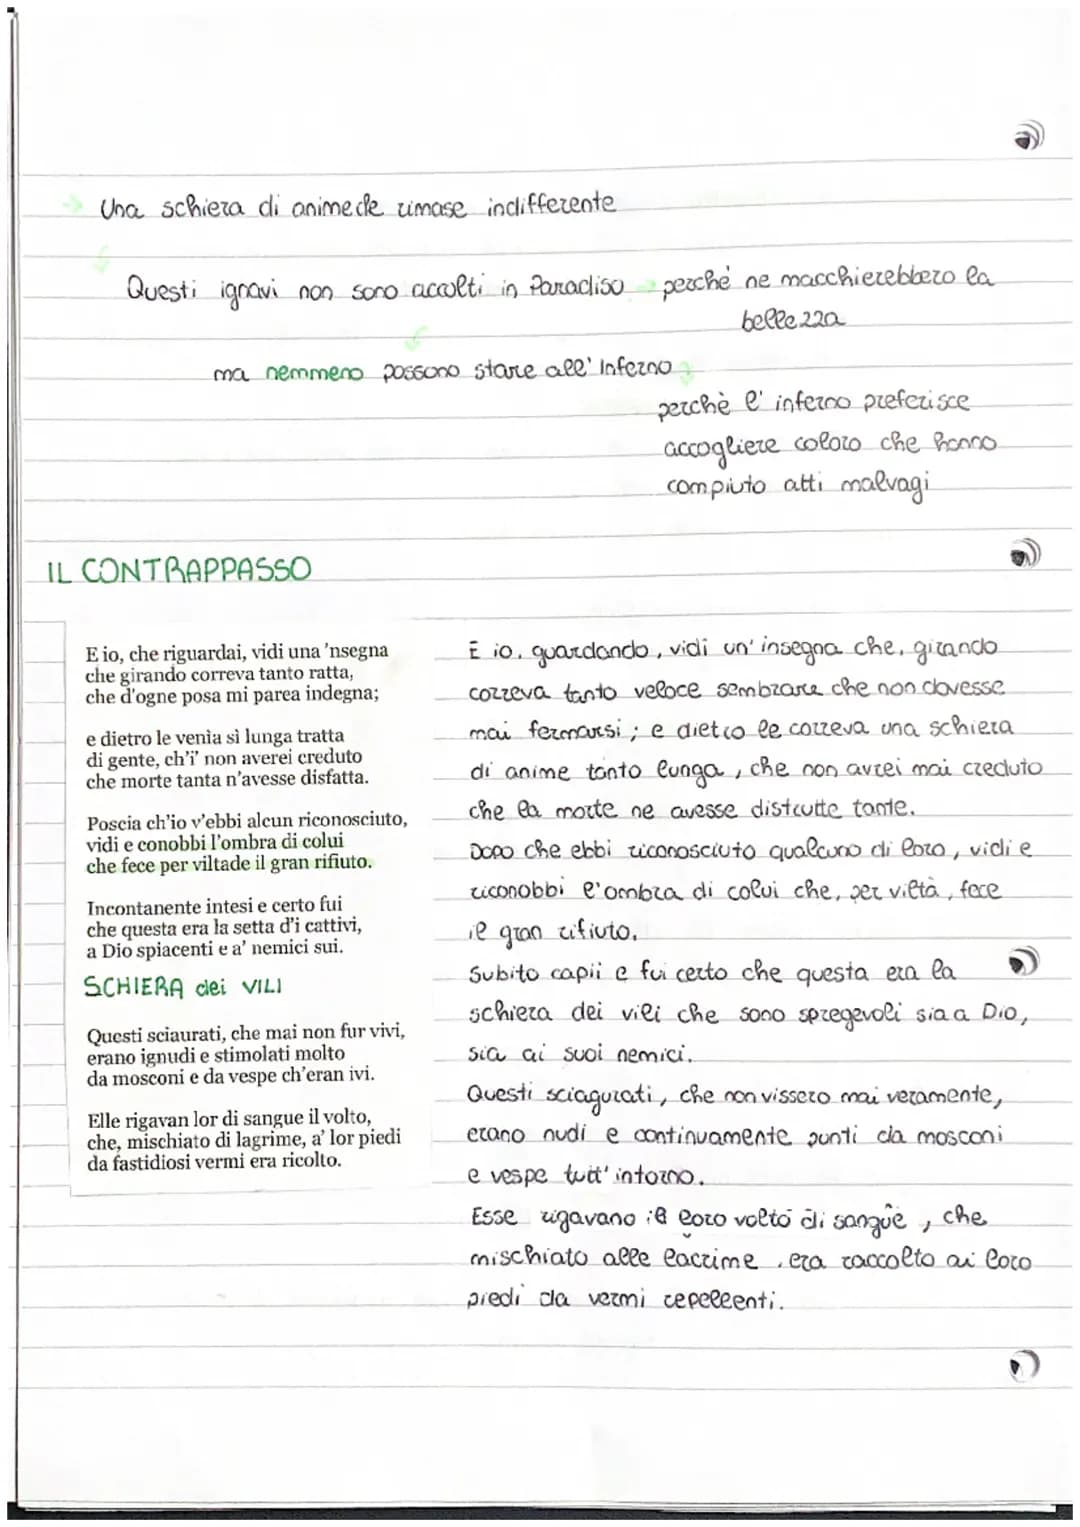 → Una schiera di anime che rimase indifferente
Questi ignavi non sono accolti in Paradiso → perché ne macchierebbero la
bellezza
ma nemmeno possono stare all' Inferno
perchè l' inferno preferisce
accogliere coloro che hanno
compiuto atti malvagi
IL CONTRAPPASSO
E io, che riguardai, vidi una 'nsegna
che girando correva tanto ratta,
che d'ogne posa mi parea indegna;
e dietro le venìa sì lunga tratta
di gente, ch'i' non averei creduto
che morte tanta n'avesse disfatta.
Poscia ch'io v'ebbi alcun riconosciuto,
vidi e conobbi l'ombra di colui
che fece per viltade il gran rifiuto.
Incontanente intesi e certo fui
che questa era la setta d'i cattivi,
a Dio spiacenti e a' nemici sui.
SCHIERA dei VILI
Questi sciaurati, che mai non fur vivi,
erano ignudi e stimolati molto
da mosconi e da vespe ch'eran ivi.
Elle rigavan lor di sangue il volto,
che, mischiato di lagrime, a' lor piedi
da fastidiosi vermi era ricolto.
E io, guardando, vidi un' insegna che, girando
correva tanto veloce sembrare che non dovesse
mai fermarsi; e dietro le correva una schiera
di anime tanto lunga, che non avrei mai creduto
che la morte ne avesse distrutte tante.
Dopo che ebbi riconosciuto qualcuno di loro, vidi e
riconobbi l'ombra di colui che, per viltà, fece
il gran rifiuto.
Subito capii e fui certo che questa era la
schiera dei vili che sono spregevoli sia a Dio,
sia ai suoi nemici.
Questi sciagurati, che non vissero mai veramente,
erano nudi e continuamente punti da mosconi
e vespe tutt' intorno.
Esse rigavano il loro volto di sangue, che
mischiato alle lacrime, era raccolto ai loro
piedi da vermi repellenti.